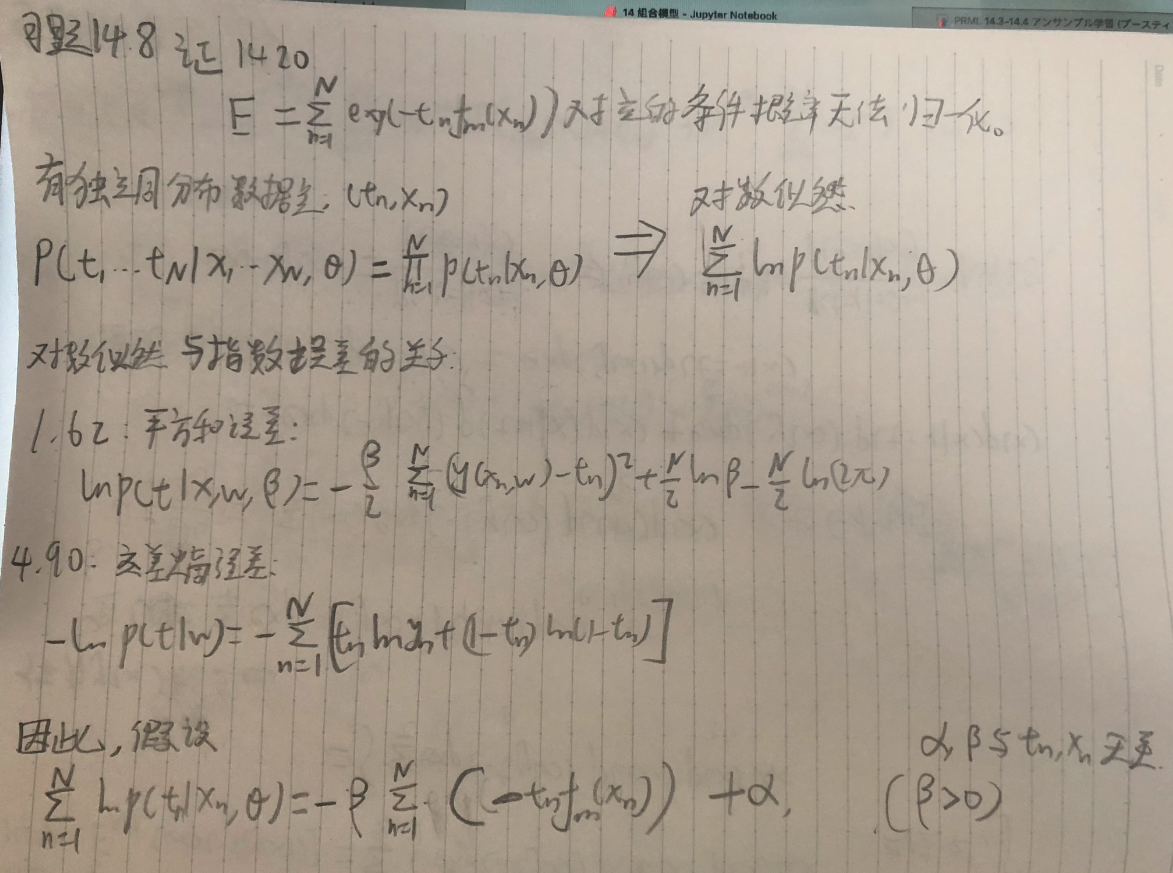 14 組合模型 - Jupyter Notebook
PRML 14.3-14.4 アンサンブル学習 (ブースティ
习题14.8 证 14.20
E = \sum_{n=1}^{N} exp(-t_n f_m(x_n)) 对应的条件概率无法归一化。
有独立同分布数据集, (t_n, x_n)
对数似然
P(t_1 ... t_N | x_1 ... x_N, θ) = \prod_{n=1}^{N} p(t_n|x_n, θ) ⇒ \sum_{n=1}^{N} ln p(t_n|x_n, θ)
对数似然与指数误差的关系:
1.62: 平方和误差:
ln p(t|x, w, β) = -\frac{β}{2} \sum_{n=1}^{N} (y(x_n, w) - t_n)^2 + \frac{N}{2} ln β - \frac{N}{2} ln(2π)
4.90: 交差熵误差:
-ln p(t|w) = -\sum_{n=1}^{N} [t_n ln y_n + (1-t_n) ln(1-t_n)]
因此, 假设
α, β 与 t_n, x_n 无关.
\sum_{n=1}^{N} ln p(t_n|x_n, θ) = -β \sum_{n=1}^{N} (-t_n f_m(x_n)) + α, (β>0)